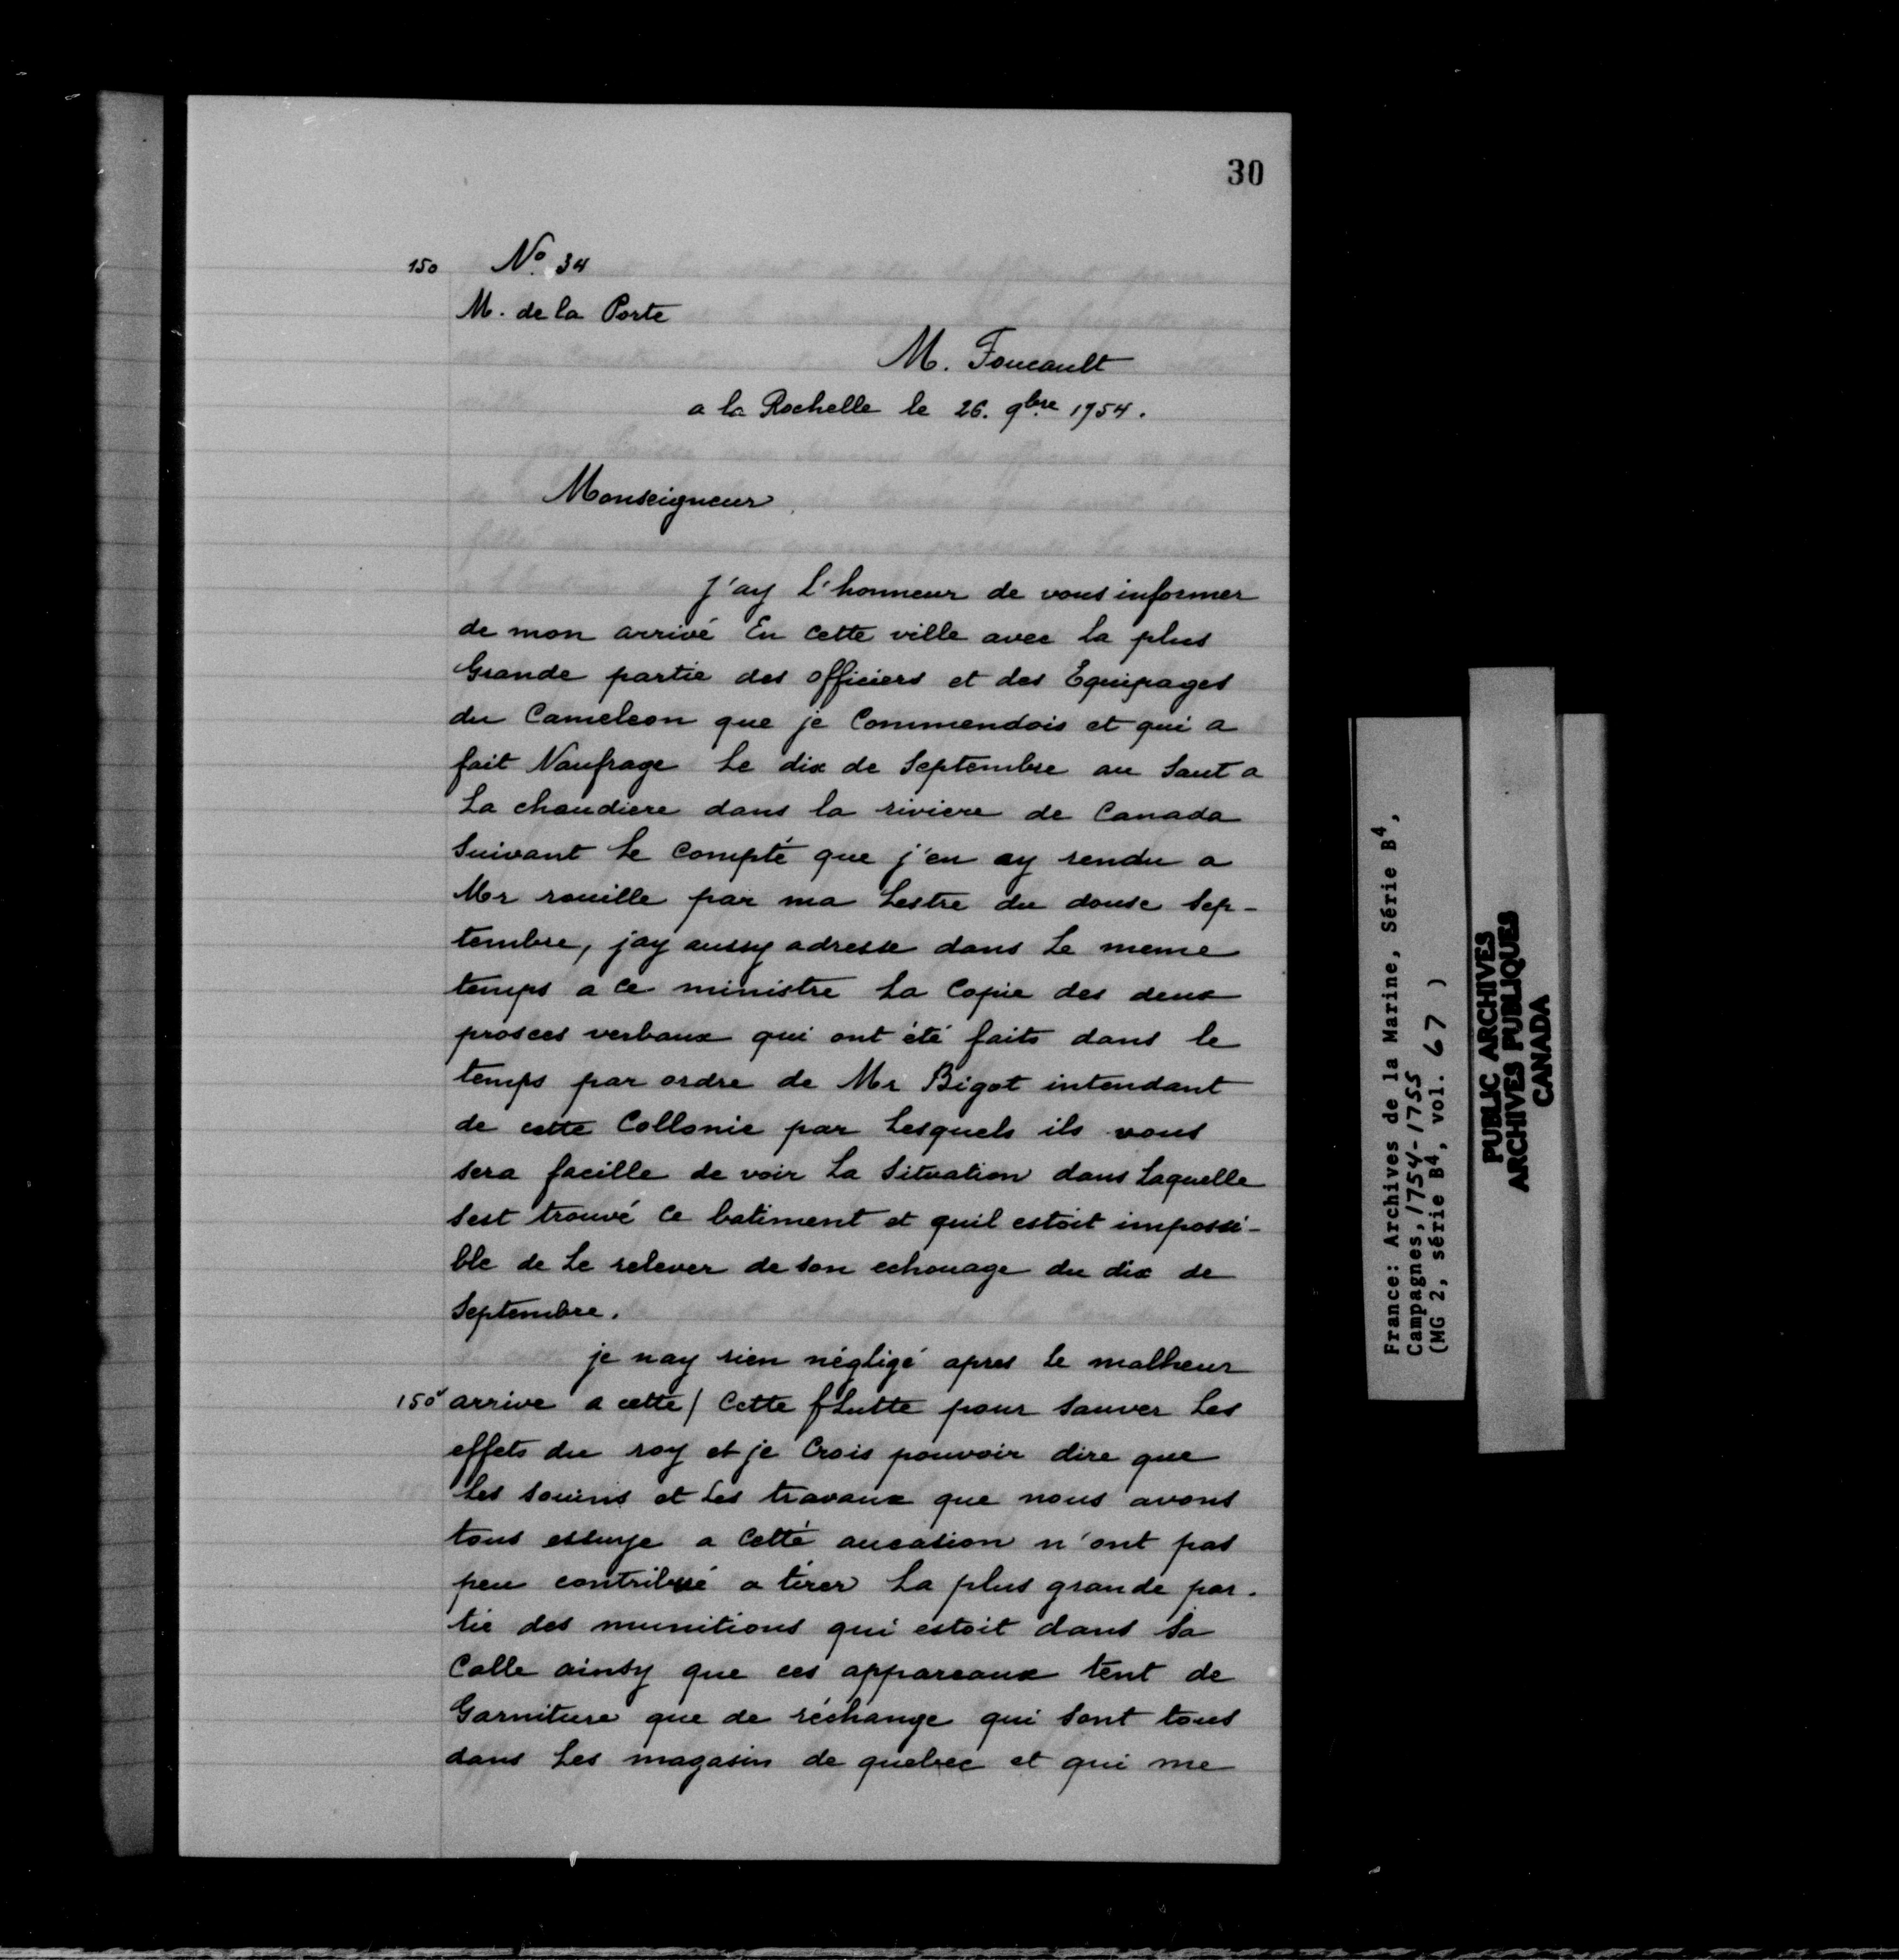 30
150 No. 34
M. de la Porte
M. Foucault
a la Rochelle le 26. 9bre 1754.
Monseigneur
J'ay l'honneur de vous informer
de mon arrivé En cette ville avec la plus
Grande partie des officiers et des Equipages
du Cameleon que je Commendois et qui a
fait Naufrage le dix de Septembre au Saut a
La chaudiere dans la riviere de Canada
Suivant le compte que j'en ay rendu a
Mr rouille par ma Lestre du douse Sep-
tembre, jay aussy adresse dans le meme
temps a ce ministre la Copie des deux
prosces verbaux qui ont été faits dans le
temps par ordre de Mr Bigot intendant
de cette Collonie par Lesquels ils vous
sera facille de voir la Situation dans Laquelle
Sest trouvé ce batiment et quil estoit impossi-
ble de le relever de son echouage du dix de
Septembre.
je nay rien négligé apres le malheur
150v arrive a cette / Cette fLutte pour Sauver Les
effets du roy et je Crois pouvoir dire que
Les souins et Les travaux que nous avons
tous essuye a Cette aucasion n'ont pas
peu contribué a tirer La plus grande par-
tie des munitions qui estoit dans Sa
Calle ainsy que ces appareaux tent de
Garniture que de réchange qui Sont tous
dans Les magasin de quebec et qui me
France: Archives de la Marine, Série B4,
Campagnes, 1754-1755
(MG 2, série B4, vol. 67 )
PUBLIC ARCHIVES
ARCHIVES PUBLIQUES
CANADA